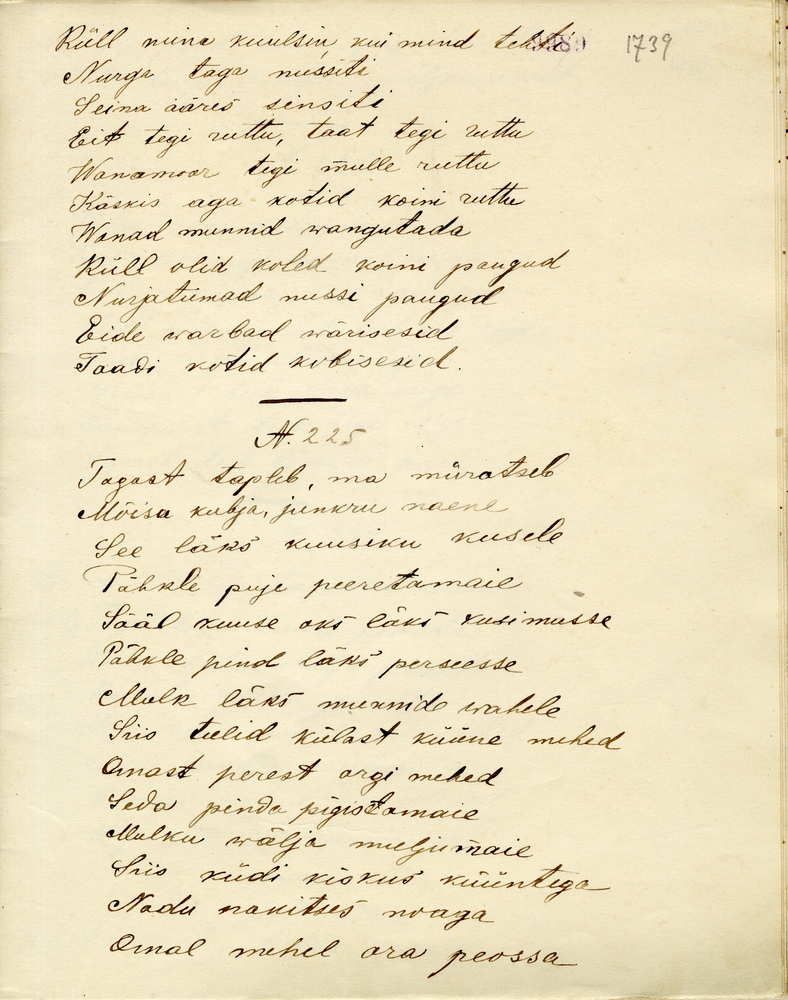 Küll mina kuulsin, kui mind tehti 9989 1739
Nurga taga nussiti
Seina ääres sinsiti
Eit tegi ruttu, taat tegi ruttu
Wanamoor tegi mulle ruttu
Käskis aga kotid koini ruttu
Wanad munnid wangutada
Küll olid koled koini paugud
Nurjatumad nussi paugud
Eide warbad wärisesid
Taadi kotid kobisesid.
N. 225
Tagast tapleb, ma müratseb
Mõisa kubja, junkru naene
See läks kuusiku kusele
Pähkle puje peeretamaie
Sääl kuuse oks läks kusimusse
Pähkle pind läks perseesse
Mulk läks munnide wahele
Siis tulid külast küüne mehed
Omast perest orgi mehed
Seda pinda pigistamaie
Mulku wälja muljumaie
Siis küdi kiskus küüntega
Nadu nakitses noaga
Omal mehel ora peossa